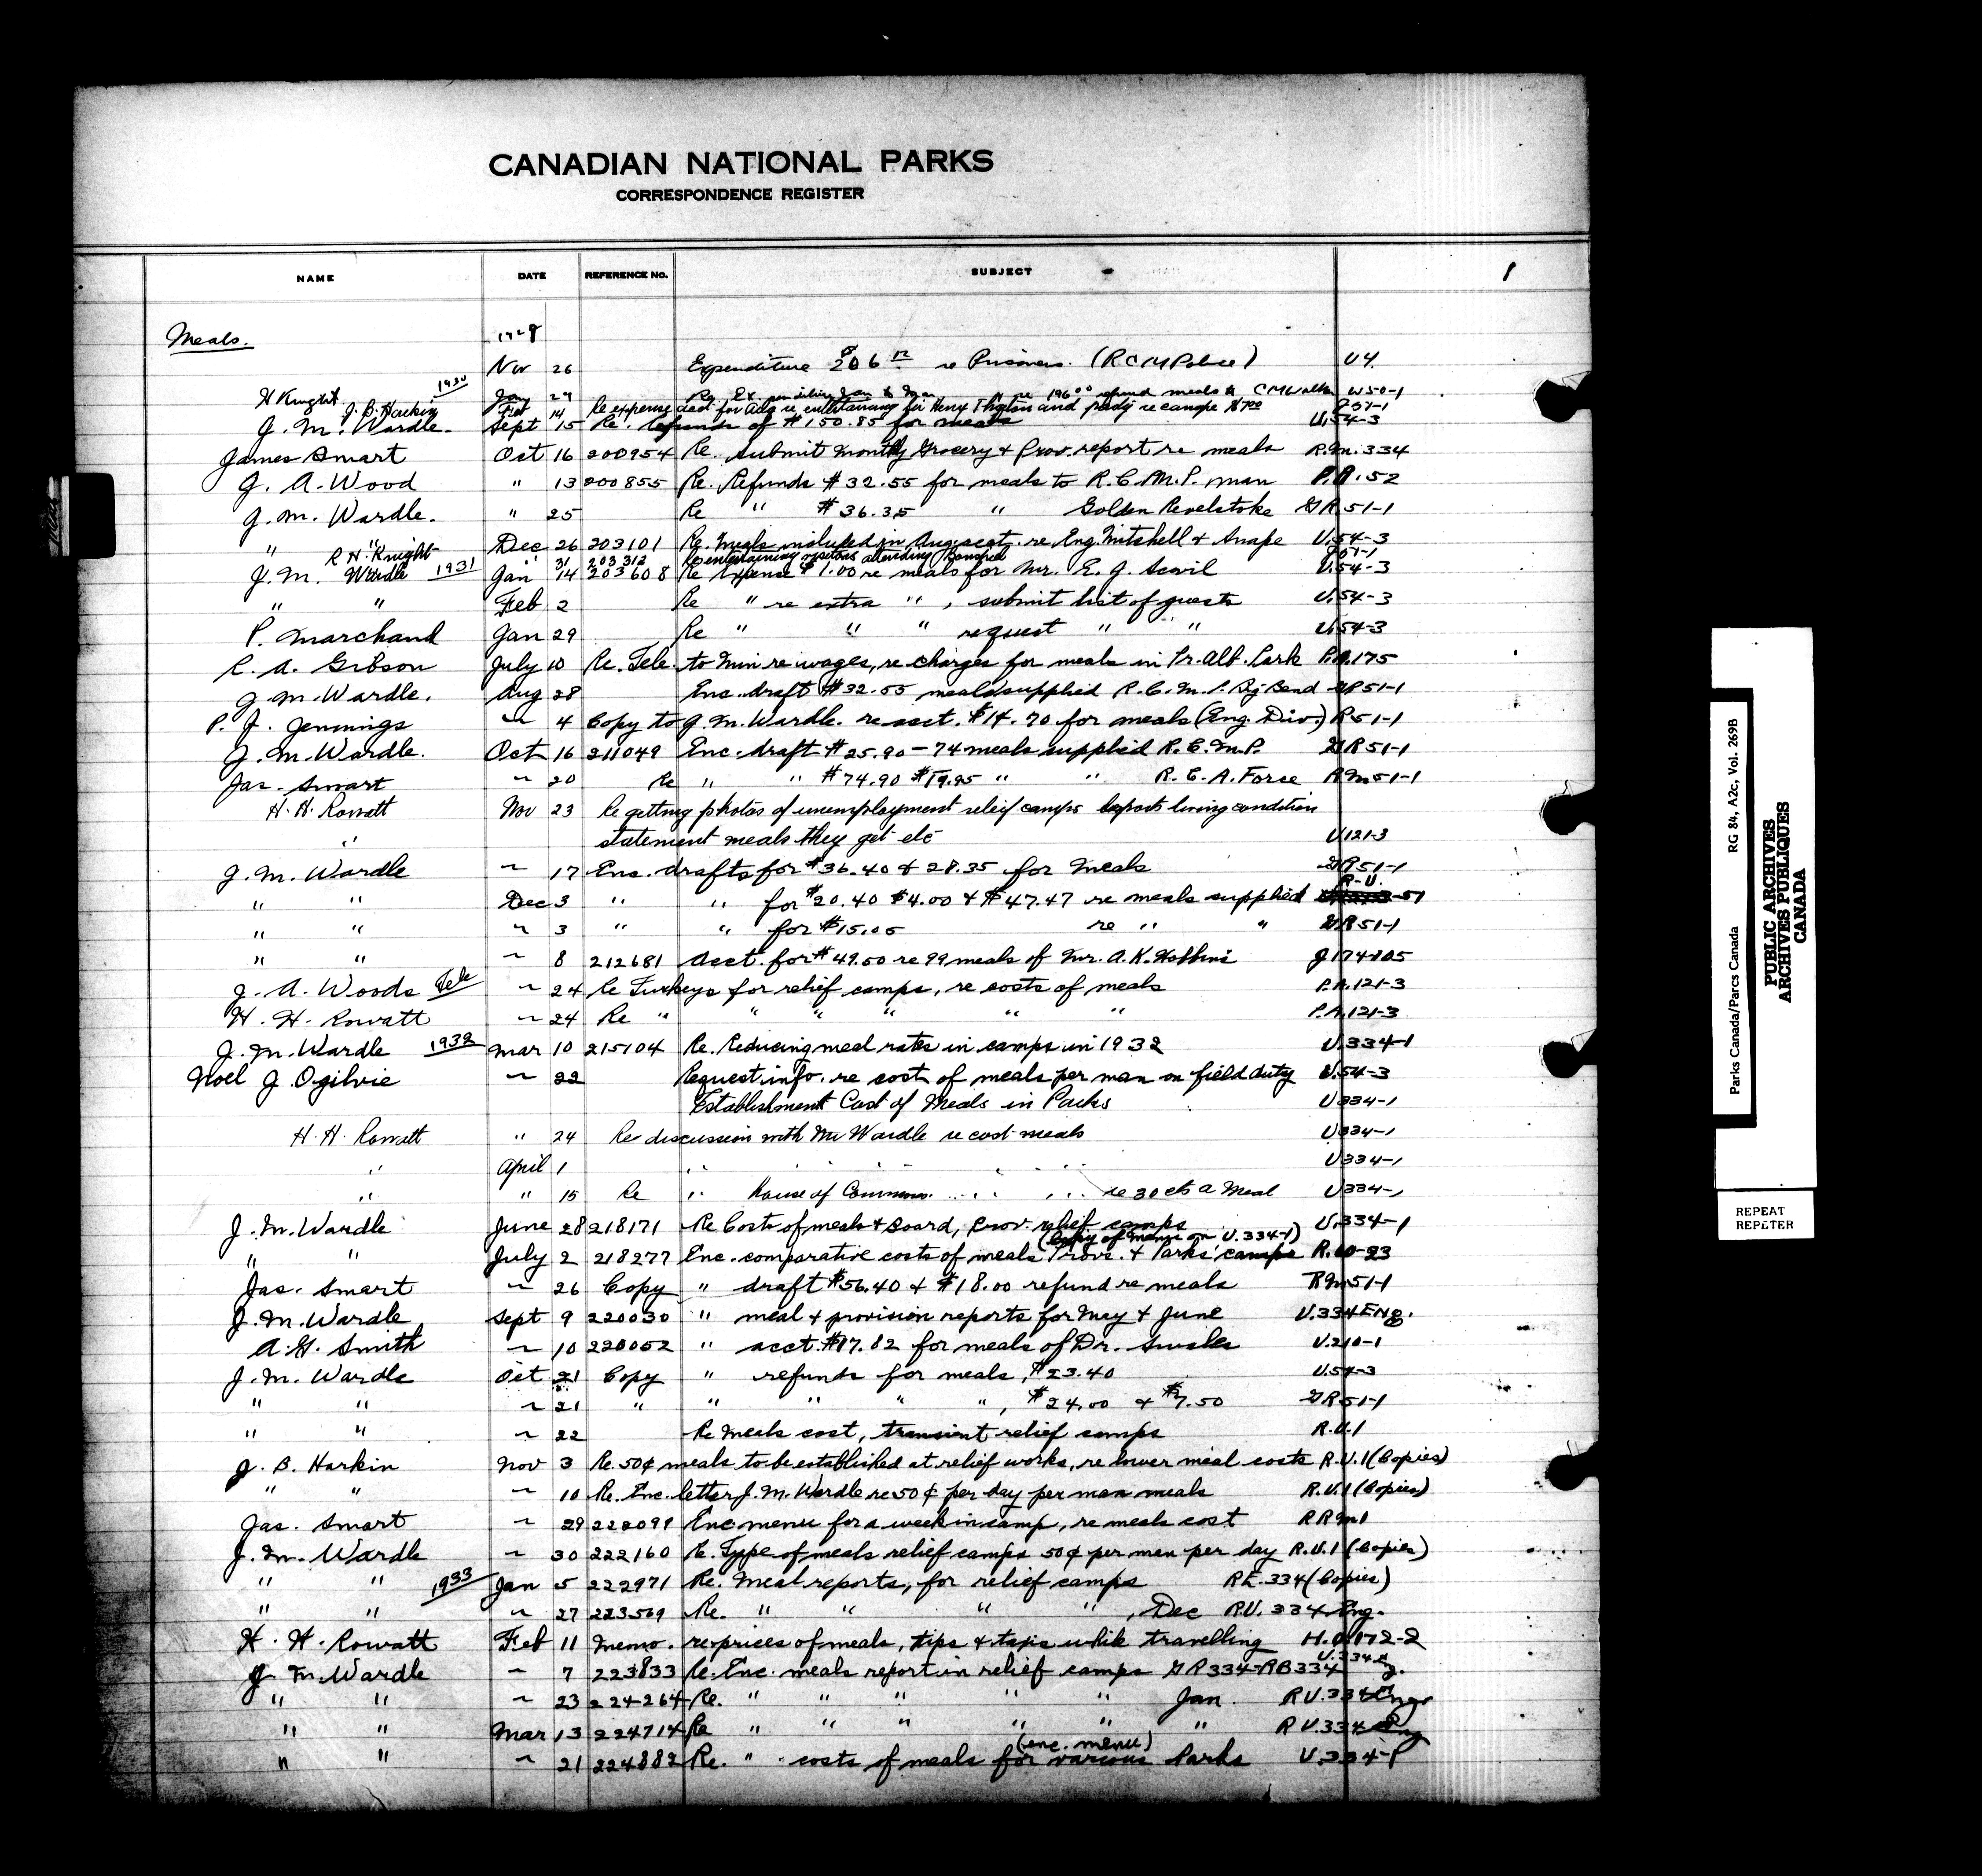 CANADIAN NATIONAL PARKS
CORRESPONDENCE REGISTER
NAME DATE REFERENCE NO. SUBJECT 1
Meals. 1928
Nov 26 Expenditure $206 re Prisoners. (RCM Police) U4.
H Knight 1930 Jan 29 Re 196.00 refund meals to CMWalker W50-1
J. B. Harkin Feb 14 Re expense acct for Aug re entertaining Sir Henry Thornton and party re canoe $7.00
J. M. Wardle. Sept 15 Re. Refunds of $150.85 for meals U.54-3
James Smart Oct 16 200954 Re. submit monthly Grocery & Prov. report re meals R.M.334
J. A. Wood " 13 200855 Re. Refunds $32.55 for meals to R.C.M.P. man P.A.52
J. M. Wardle. " 25 Re " $36.35 " Golden Revelstoke GR51-1
" " Dec 26 203101 Re. Meals included in Aug. acct. re Eng. Mitchell & Snape U.54-3
R H. Knight 31 203312 Re entertaining visitors attending Banquet J51-1
J. M. Wardle 1931 Jan 14 203608 Re Expense $1.00 re meals for Mr. E. J. Scovil U.54-3
" " Feb 2 Re " re extra " , submit list of guests U.54-3
P. Marchand Jan 29 Re " " " request " " U.54-3
R. A. Gibson July 10 Re. Tele. to Min re wages, re charges for meals in Pr. Alb. Park P.A.175
J. M. Wardle. Aug 28 Enc. draft $32.55 meals supplied R.C.M.P. Big Bend GR51-1
P. J. Jennings ~ 4 Copy to J. M. Wardle. re acct. $14.70 for meals (Eng. Div.) R51-1
J. M. Wardle. Oct 16 211049 Enc. draft $25.90 - 74 meals supplied R.C.M.P. GR51-1
Jas. Smart ~ 20 Re " " $74.90 $19.95 " " R.C.A. Force RM51-1
H. H. Rowatt Nov 23 Re getting photos of unemployment relief camps report living condition
" statement meals they get etc U121-3
J. M. Wardle ~ 17 Enc. drafts for $36.40 & 28.35 for meals GR51-1
R-U.
" " Dec 3 " " for $20.40 $4.00 & $47.47 re meals supplied -51
" " ~ 3 " " for $15.05 re " " GR51-1
" " ~ 8 212681 Acct. for $49.50 re 99 meals of Mr. A. K. Robbins J174-105
J. A. Woods Tele ~ 24 Re Turkeys for relief camps, re costs of meals P.A.121-3
H. H. Rowatt ~ 24 Re " " " " " " P.A.121-3
J. M. Wardle 1932 Mar 10 215104 Re. Reducing meal rates in camps in 1932 U.334-1
Noel J. Ogilvie ~ 22 Request info. re cost of meals per man on field duty U.54-3
Establishment Cost of Meals in Parks U334-1
H. H. Rowatt " 24 Re discussion with Mr Wardle re cost meals U334-1
" April 1 " " " " " U334-1
" " 15 Re " House of Commons " " re 30 cts a Meal U334-1
J. M. Wardle June 28 218171 Re Costs of meals & Board, Prov. relief camps U.334-1
(Copy of menu on U.334-1)
" " July 2 218277 Enc. comparative costs of meals Provs. & Parks' camps R.60-23
Jas. Smart ~ 26 Copy " draft $56.40 & $18.00 refund re meals RM51-1
J. M. Wardle Sept 9 220030 " meal & provision reports for May & June U.334 Eng.
A. G. Smith ~ 10 220052 " acct. $17.82 for meals of Dr. Swales U.210-1
J. M. Wardle Oct 21 Copy " refunds for meals, $23.40 U.54-3
" " ~ 21 " " " " ", $24.00 & $7.50 GR51-1
" " ~ 22 Re Meals cost, transient relief camps R.U.1
J. B. Harkin Nov 3 Re. 50¢ meals to be established at relief works, re lower meal costs R.U.1 (Copies)
" " ~ 10 Re. Enc. letter J. M. Wardle re 50¢ per day per man meals R.U.1 (Copies)
Jas. Smart ~ 29 222099 Enc menu for a week in camp, re meals cost RRM1
J. M. Wardle ~ 30 222160 Re. Type of meals relief camps 50¢ per man per day R.U.1 (Copies)
" " 1933 Jan 5 222971 Re. Meal reports, for relief camps RE.334 (Copies)
" " ~ 27 223569 Re. " " " " , Dec RU.334 Eng.
H. H. Rowatt Feb 11 Memo. re prices of meals, tips & taxis while travelling H.O.172-2
J. M. Wardle ~ 7 223833 Re. Enc. meals report in relief camps GR334-RB334 U.334
" " ~ 23 224264 Re. " " " " " Jan. RU.334 Eng.
" " Mar 13 224714 Re " " " " " " RU.334 Eng
(enc. menu)
" " ~ 21 224882 Re. " costs of meals for various Parks U.334-P
Parks Canada/Parcs Canada RG 84, A2c, Vol. 269B
PUBLIC ARCHIVES
ARCHIVES PUBLIQUES
CANADA
REPEAT
REPETER